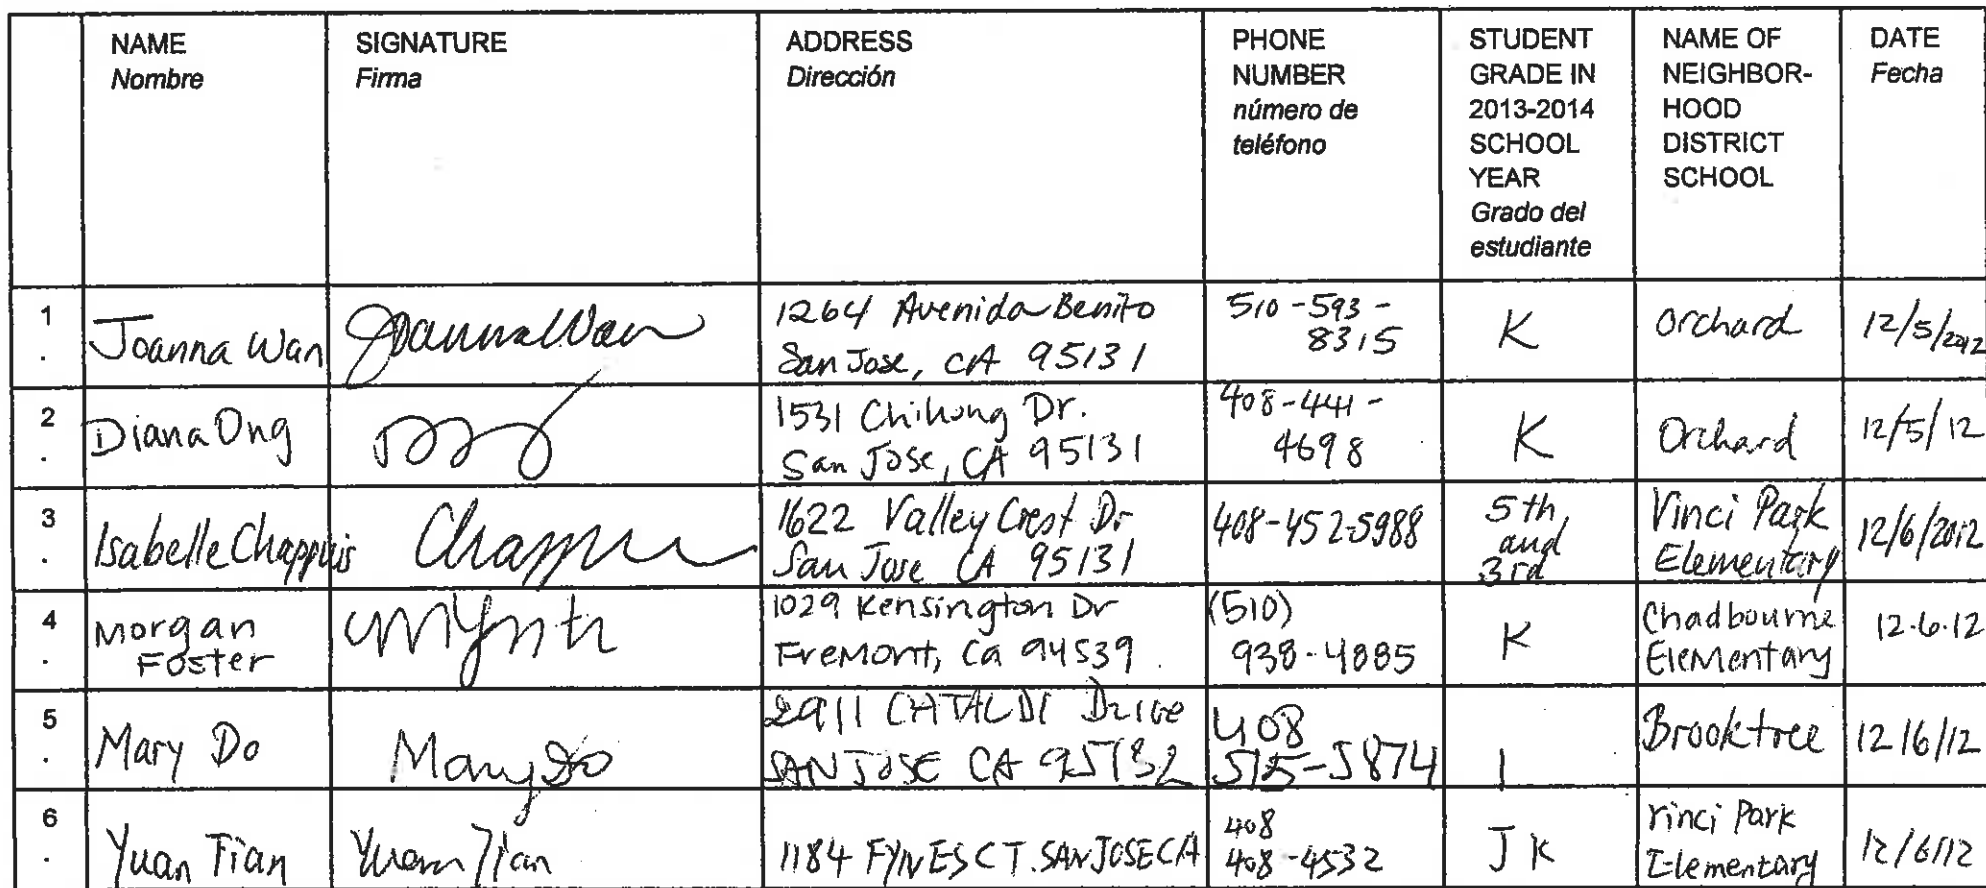 NAME
Nombre
SIGNATURE
Firma
ADDRESS
Dirección
PHONE
NUMBER
número de
teléfono
STUDENT
GRADE IN
2013-2014
SCHOOL
YEAR
Grado del
estudiante
NAME OF
NEIGHBOR-
HOOD
DISTRICT
SCHOOL
DATE
Fecha
1
.
Joanna Wan
Joanna Wan
1264 Avenida Benito
San Jose, CA 95131
510-593-
8315
K
Orchard
12/5/2012
2
.
Diana Ong
1531 Chihong Dr.
San Jose, CA 95131
408-441-
4698
K
Orchard
12/5/12
3
.
Isabelle Chappuis
1622 Valley Crest Dr
San Jose CA 95131
408-452-5988
5th
and
3rd
Vinci Park
Elementary
12/6/2012
4
.
Morgan
Foster
1029 Kensington Dr
Fremont, Ca 94539
(510)
938-4885
K
Chadbourne
Elementary
12.6.12
5
.
Mary Do
Mary Do
2911 CATALDI Drive
SAN JOSE CA 95132
408
515-5874
1
Brooktree
12/6/12
6
.
Yuan Tian
Yuan Tian
1184 FYNES CT. SAN JOSE CA
408
408-4532
JK
Vinci Park
Elementary
12/6/12